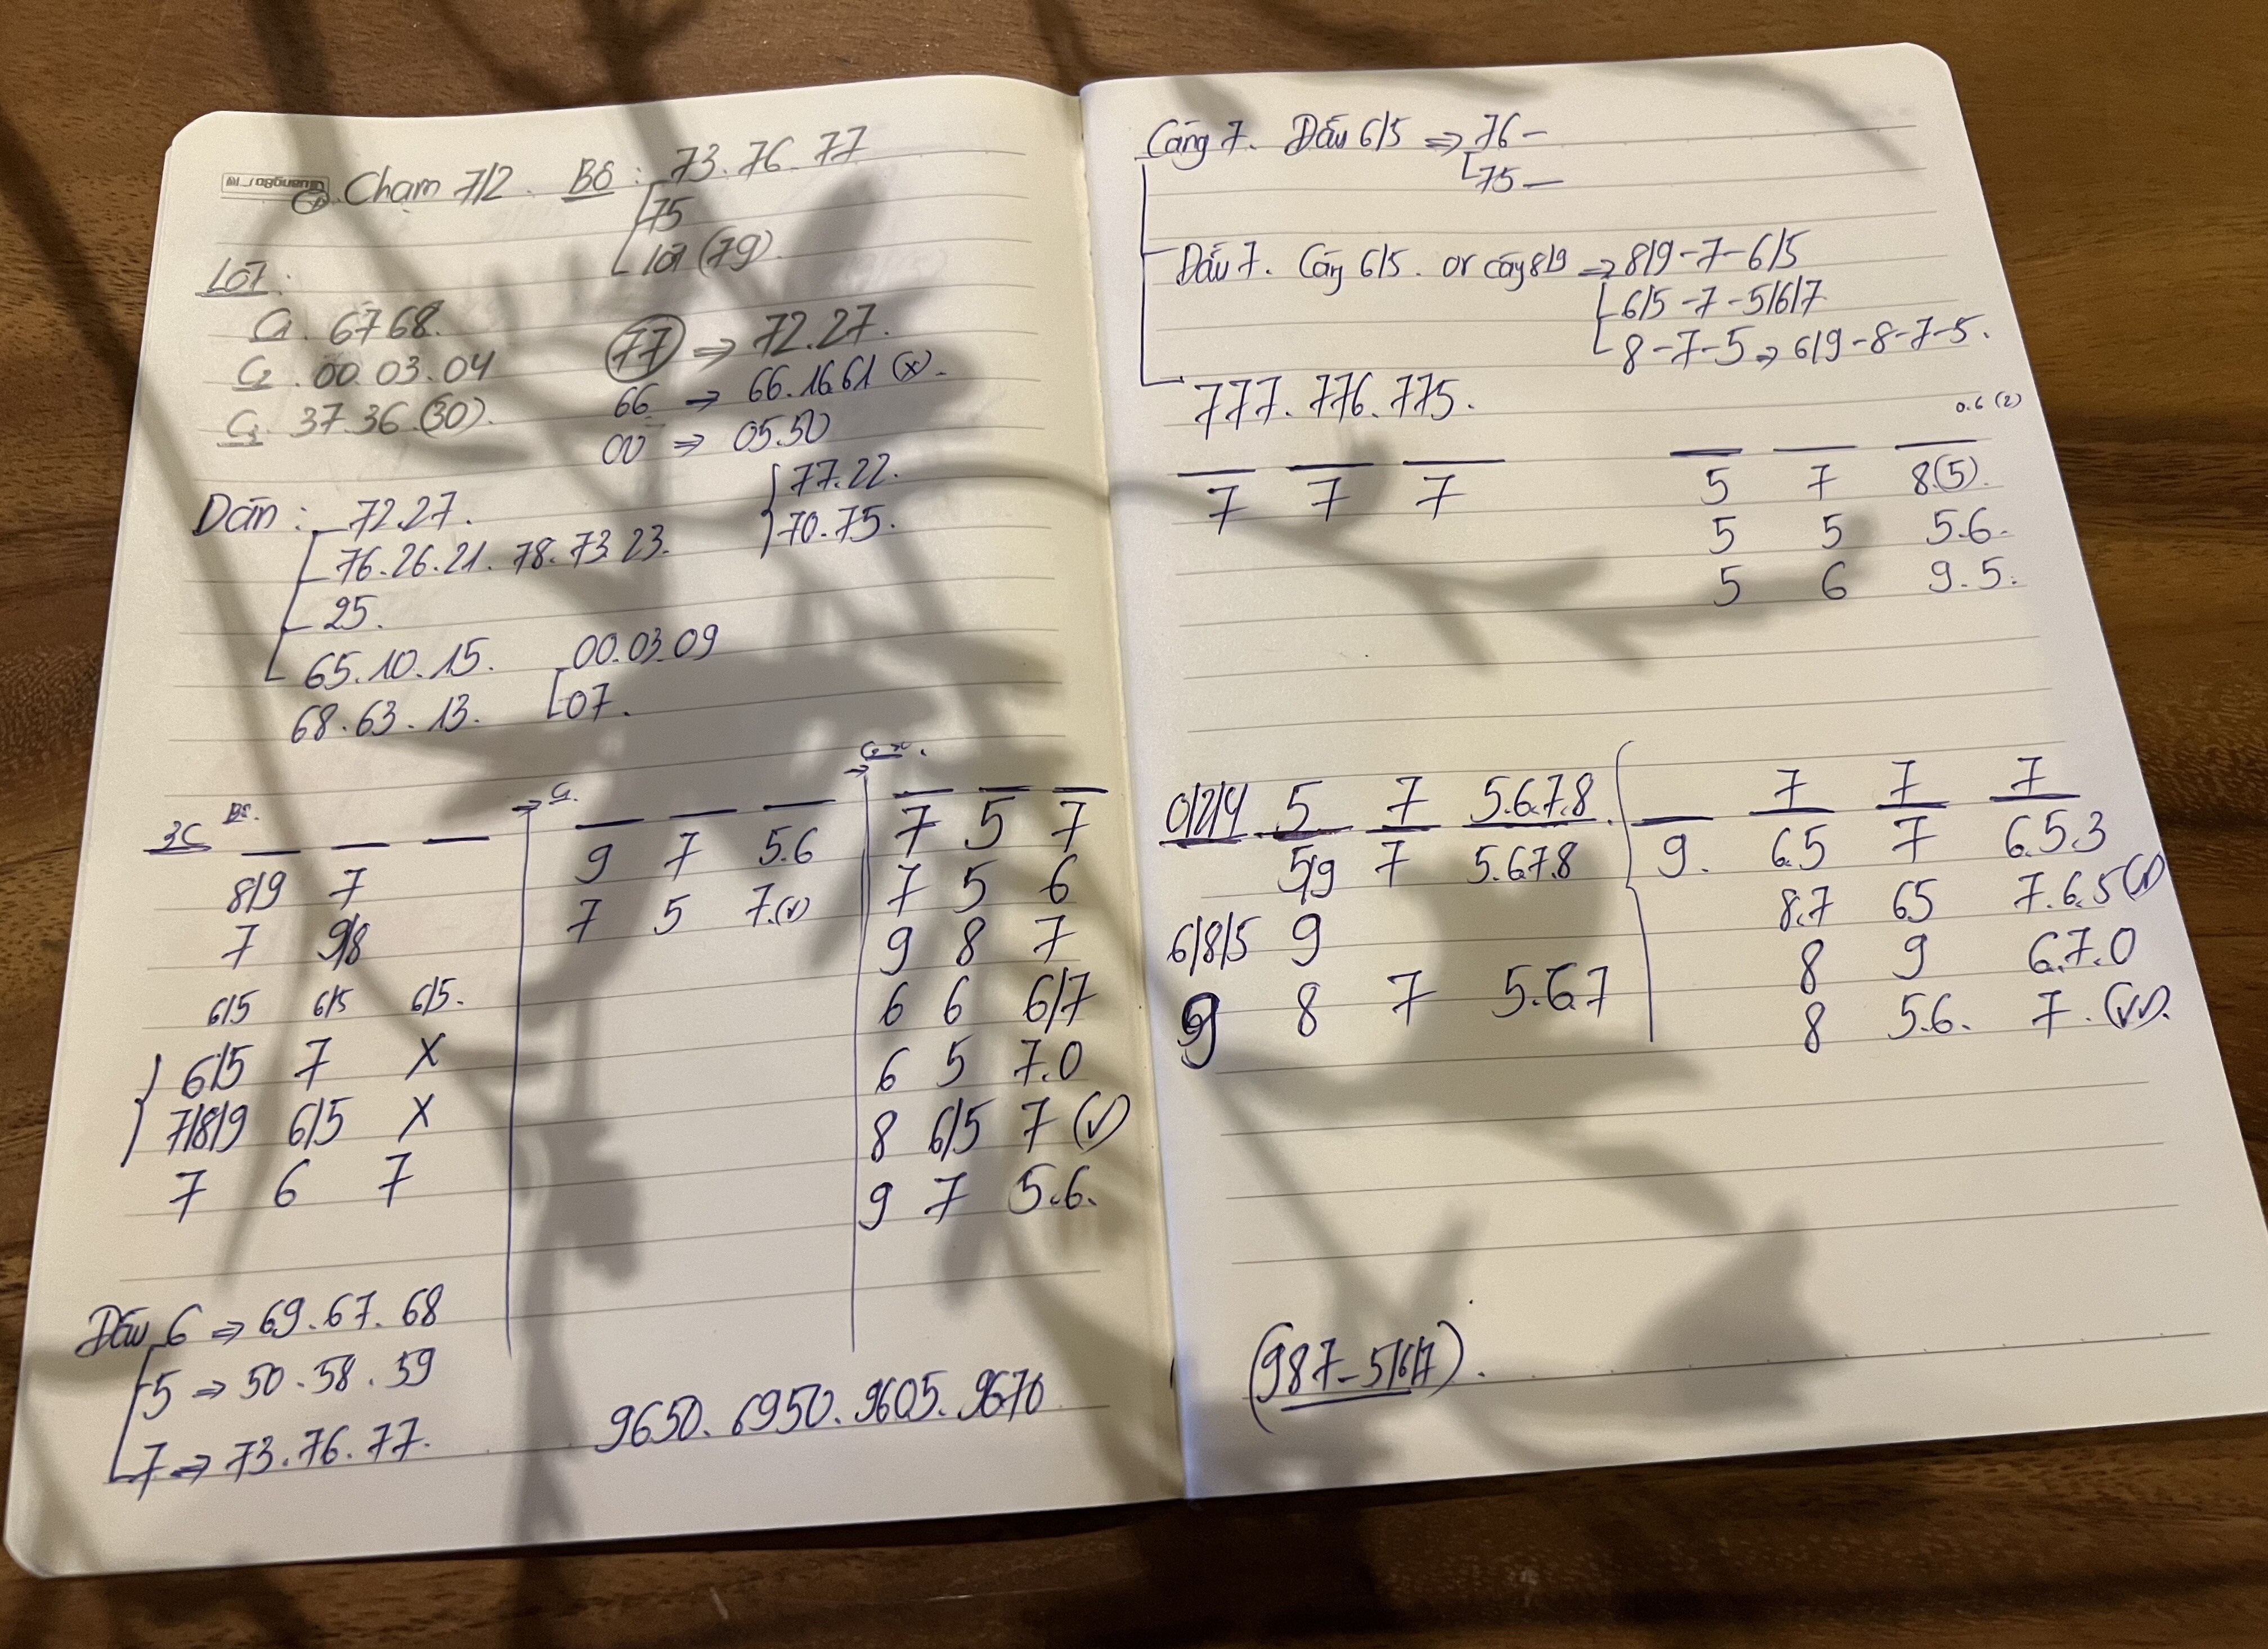 Chạm 7/2. Bộ : 73.76.77
75
lót (79)
Lót :
C1. 67 68.
C2. 00.03.04
C3. 37.36.(30).
77 => 72.27.
66 => 66.16 61 (x).
00 => 05.50
Dàn : 72.27.
76.26.21.78.73.23.
25.
65.10.15.
68.63.13.
77.22.
70.75.
00.03.09
07.
3C
8/9 7
7 9/8
6/5 6/5 6/5.
6/5 7 X
7/8/9 6/5 X
7 6 7
9 7 5.6
7 5 7.(v)
7 5 7
7 5 6
9 8 7
6 6 6/7
6 5 7.0
8 6/5 7 (v)
9 7 5.6.
Đầu 6 => 69.67.68
5 => 50.58.59
7 => 73.76.77.
9650.6950.9605.9670
Càng 7. Đầu 6/5 => 76 –
75 –
Đầu 7. Càng 6/5. or càng 8/9 => 8/9-7-6/5
6/5-7-5/6/7
8-7-5 => 6/9-8-7-5.
777.776.775.
7 7 7
0.6 (2)
5 7 8(5).
5 5 5.6.
5 6 9.5.
0/2/4 5 7 5.6.7.8
5/9 7 5.6.7.8
6/8/5 9
9 8 7 5.6.7
7 7 7
9. 6.5 7 6.5.3
8.7 65 7.6.5(v)
8 9 6.7.0
8 5.6. 7.(vv).
(987-5/6/7).